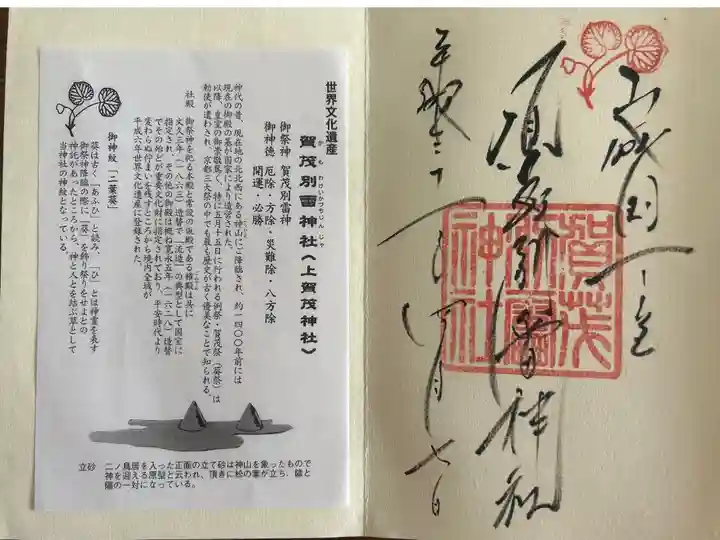 世界文化遺産
賀茂別雷神社（上賀茂神社）
かもわけいかづちじんじゃ
御祭神 賀茂別雷神
御神徳 厄除・方除・災難除・八方除
開運・必勝
神代の昔、現在地の北北西にある神山にご降臨され、約一四〇〇年前には
現在の御殿の基が国家により造営された。
以降、皇室の御崇敬篤く、特に五月十五日に行われる例祭・賀茂祭（葵祭）は
勅使が遣わされ、京都三大祭の中でも最も歴史が古く優美なことで知られる。
社殿 御祭神を祀る本殿と常設の仮殿である権殿は共に
文久三年（一八六三）造替で「流造」の典型として国宝に
指定され、その他の御殿は概ね寛永五年（一六二八）造替
でその殆どが重要文化財に指定されており、平安時代より
変わらぬ佇まいを残すところから境内全域が
平成六年世界文化遺産に登録された。
御神紋「二葉葵」
葵は古く「あふひ」と読み、「ひ」とは神霊を表す
御祭神降臨の際に「葵」を飾り祭りをせよとの
神託があったところから、神と人とを結ぶ草として
当神社の神紋となっている。
立砂 二ノ鳥居を入った正面の立て砂は神山を象ったもので
神を迎える原型と云われ、頂きに松の葉が立ち、陰と
陽の一対になっている。
山城国一之宮
賀茂別雷神社
賀茂
別雷
神社
月七日